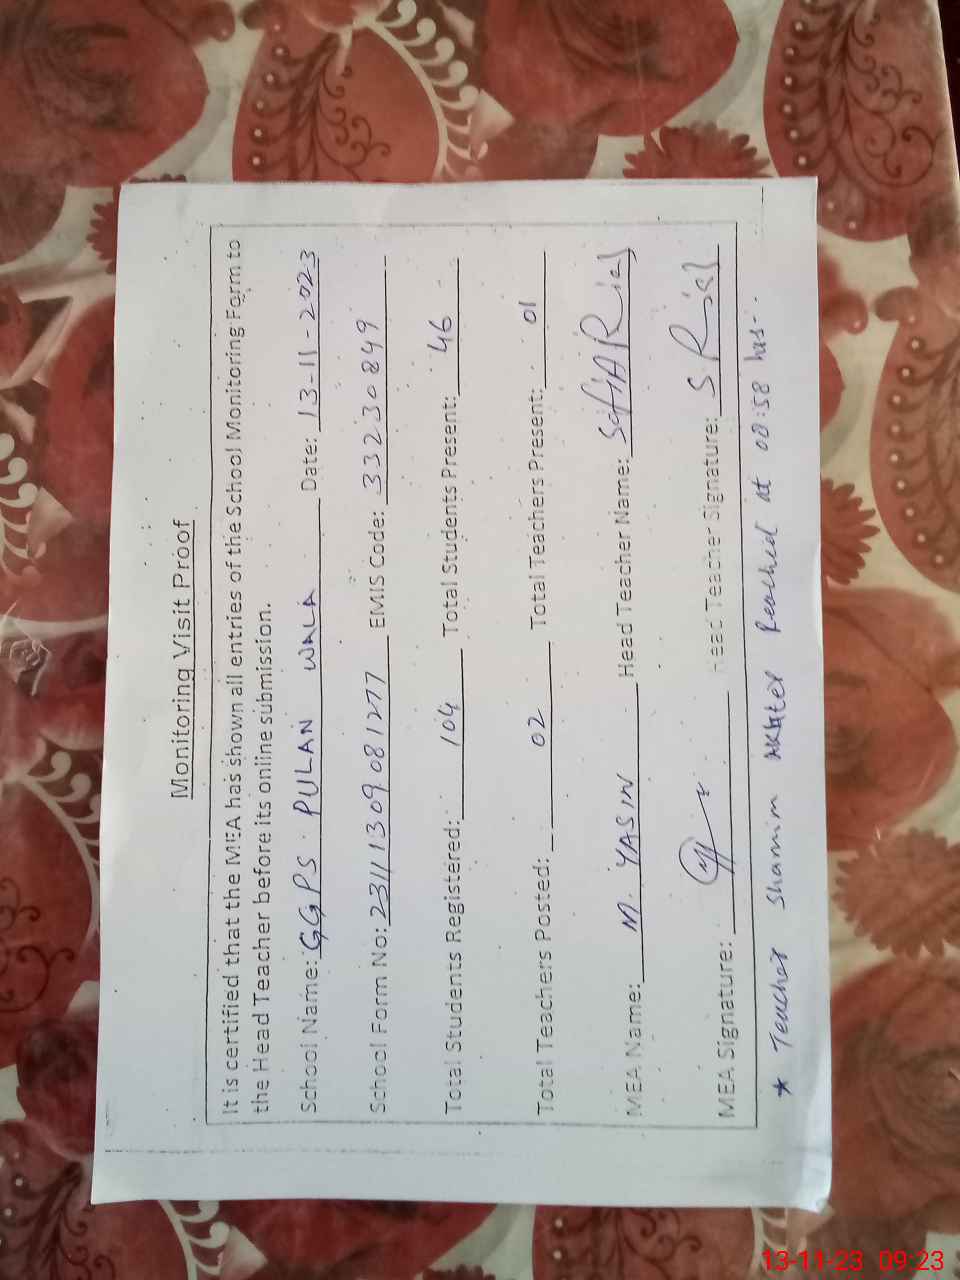 Monitoring Visit Proof
It is certified that the MEA has shown all entries of the School Monitoring Form to
the Head Teacher before its online submission.
School Name: GGPS. PULAN WALA Date: 13-11-2023
School Form No: 2311130908 1277 EMIS Code: 33230849
Total Students Registered: 104 Total Students Present: 46
Total Teachers Posted: 02 Total Teachers Present: 01
MEA Name: M. YASIN Head Teacher Name: SofIA Riaz
MEA Signature: Head Teacher Signature: S Riaz
* Teacher Shamim Akhter Reached at 08:58 has...
13-11-23 09:23